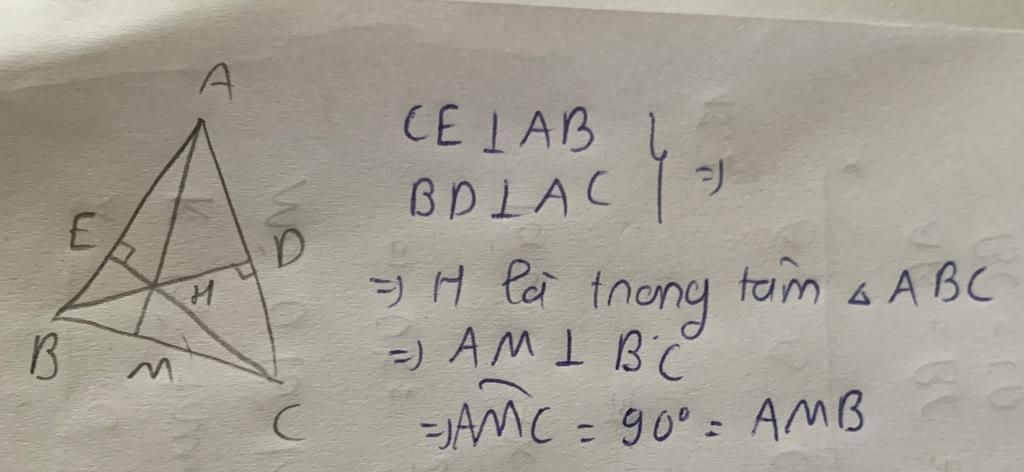 A
E
D
H
B
M
C
CE ⊥ AB
BD ⊥ AC } =>
=> H là trọng tâm △ ABC
=> AM ⊥ BC
=> AMC = 90° = AMB